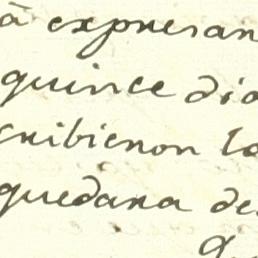 a expresan
quince dia
cribieron la
quedara de